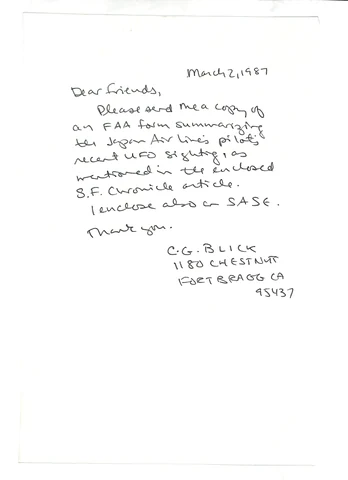 March 2, 1987
Dear friends,
Please send me a copy of
an FAA form summarizing
the Japan Air Line's pilot's
recent UFO sighting, as
mentioned in the enclosed
S.F. Chronicle article.
I enclose also an SASE.
Thank you.
C.G. BLICK
1180 CHESTNUT
FORT BRAGG CA
95437